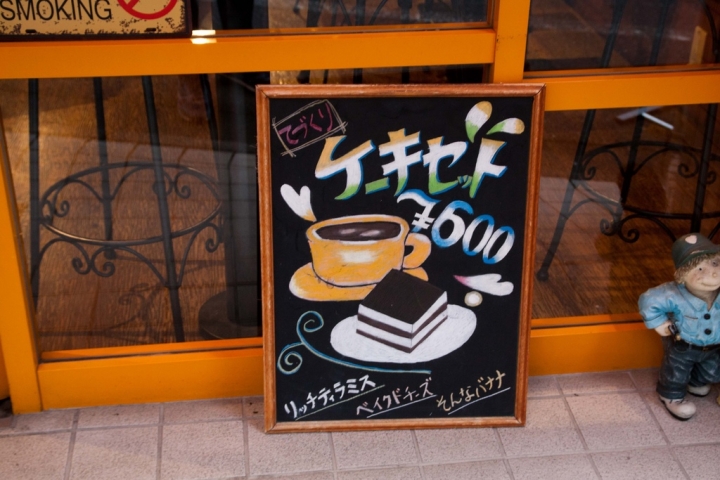 SMOKING
てづくり
ケーキセット
¥600
リッチティラミス
ベイクドチーズ
そんなバナナ